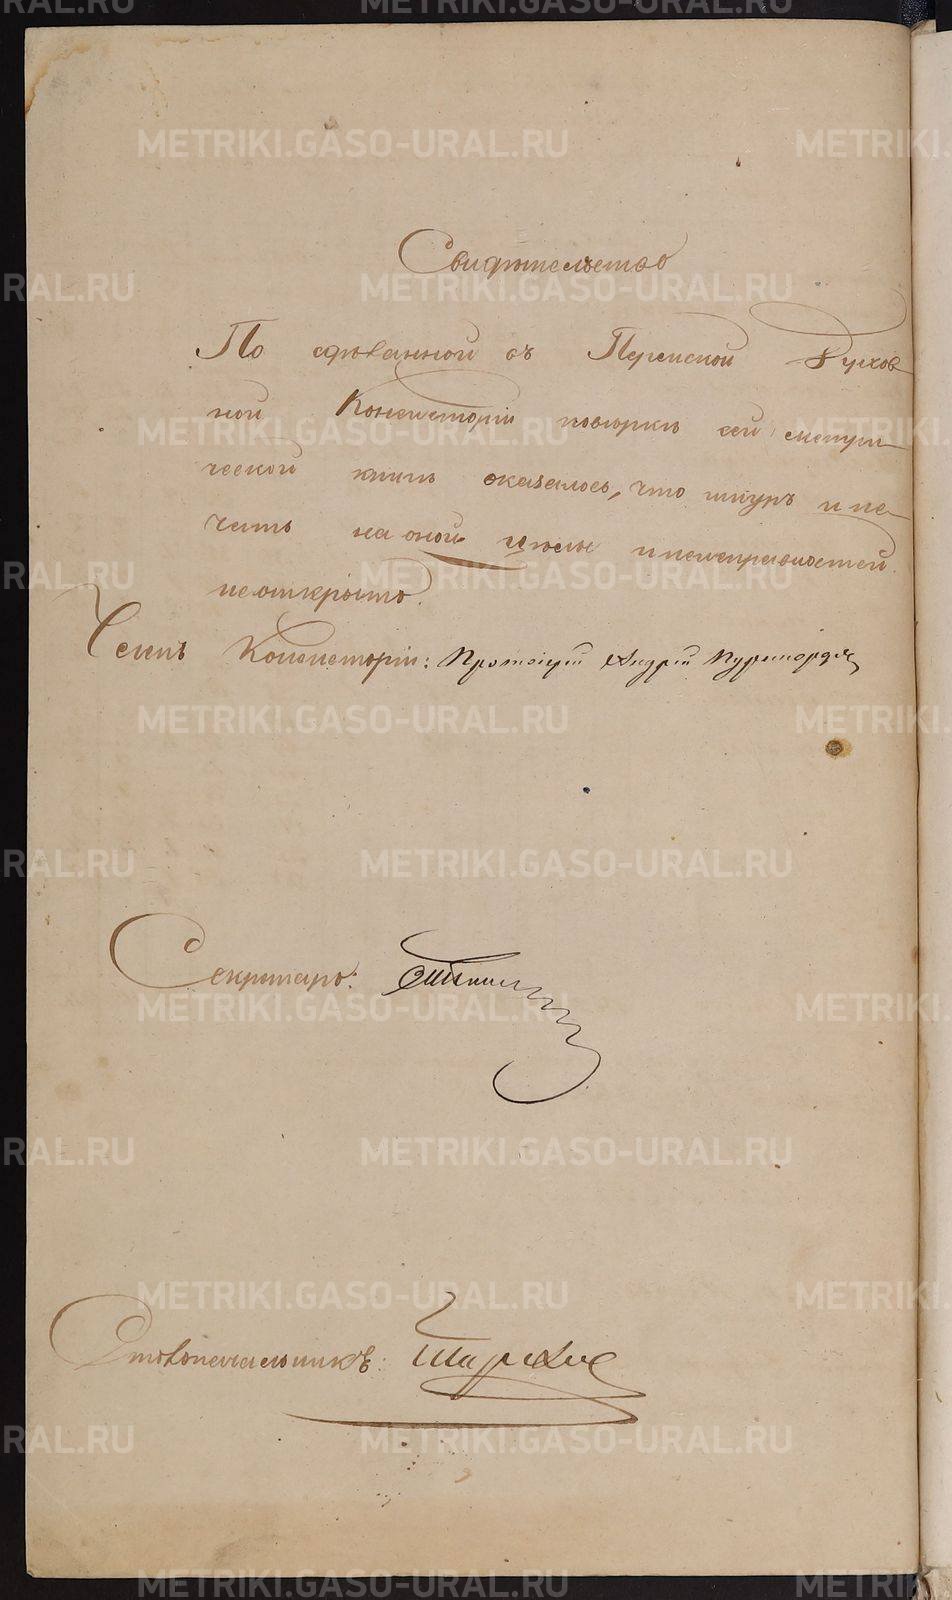 Свидѣтельство
По сдѣланной въ Пермской Духов-
ной Консисторіи повѣркѣ сей метри-
ческой книги оказалось, что шнуръ и пе-
чать на оной цѣлы и неисправностей
не открыто.
Членъ Консисторіи: Протоіерей Андрей
Секретарь:
Столоначальникъ:
METRIKI.GASO-URAL.RU